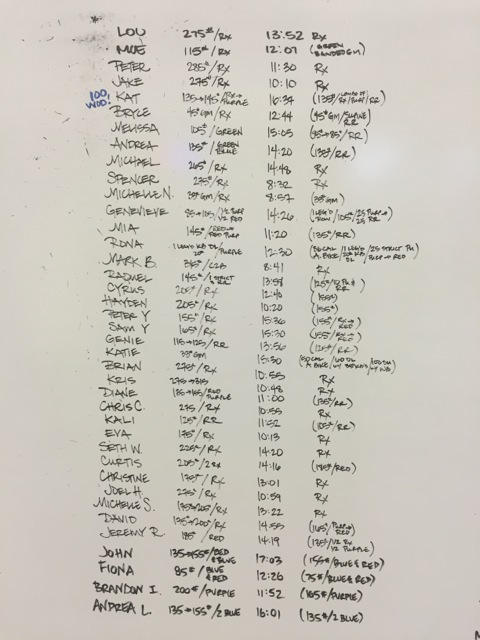 LOU 275#/RX 13:52 RX
MOE 115#/RX 12:07 (GREEN BANDED GM)
PETER 285#/RX 11:30 RX
JAKE 275#/RX 10:10 RX
100 WOD! KAT 135→145#/RX→PURPLE 16:34 (135#/
BRYCE 45#GM/RX 12:44 (45#GM/SUPINE RR)
MELISSA 105#/GREEN 15:05 (95→85#/RR)
ANDREA 135#/GREEN BLUE 14:20 (135#/RR)
MICHAEL 265#/RX 14:48 RX
SPENCER 275#/RX 8:32 RX
MICHELLE N. 35#GM/RX 8:57 (35#GM)
GENEVIEVE 95→105/1/2 PURP 1/2 RED 14:26
MIA 145#/RED→RED PURP 11:20 (135#/RR)
RONA /PURPLE 12:30
MARK B. 8:41 RX
RAQUEL 145#/1 STRICT RR 13:58
CYRUS 205#/RX 12:40 (155#)
HAYDEN 205#/RX 10:20 (155#)
PETER Y 155#/RX 15:36 (155#/RX→RED)
SAM Y 165#/RX 15:30 (155#/RX→RED)
GENIE 115→125/RR 13:56 (125#/RR)
KATIE 35#GM 15:30
BRIAN 275#/RX 10:55 RX
KRIS 275→315 10:48 RX
DIANE 135→165/RED PURPLE 11:00 (135#/RR)
CHRIS C. 275/RX 10:55 RX
KALI 125#/RR 11:52 (105#/RR)
EVA 175#/RX 10:13 RX
SETH W. 225#/RX 14:20 RX
CURTIS 205#/2RX 14:16 /RED)
CHRISTINE 175#/RX 13:01 RX
JOEL H. 275#/RX 10:59 RX
MICHELLE S. 175→205#/RX 13:22 RX
DAVID 135→200#/RX 14:55 (165#/PURP→RED)
JEREMY R. 185#/RED 14:19 (135#/1/2 RX 1/2 PURPLE)
JOHN 135→155#/RED & BLUE 17:03 (155#/BLUE & RED)
FIONA 85#/BLUE & RED 12:26 (75#/BLUE & RED)
BRANDON I. 200#/PURPLE 11:52 (165#/PURPLE)
ANDREA L. 135→155#/2 BLUE 16:01 (135#/2 BLUE)